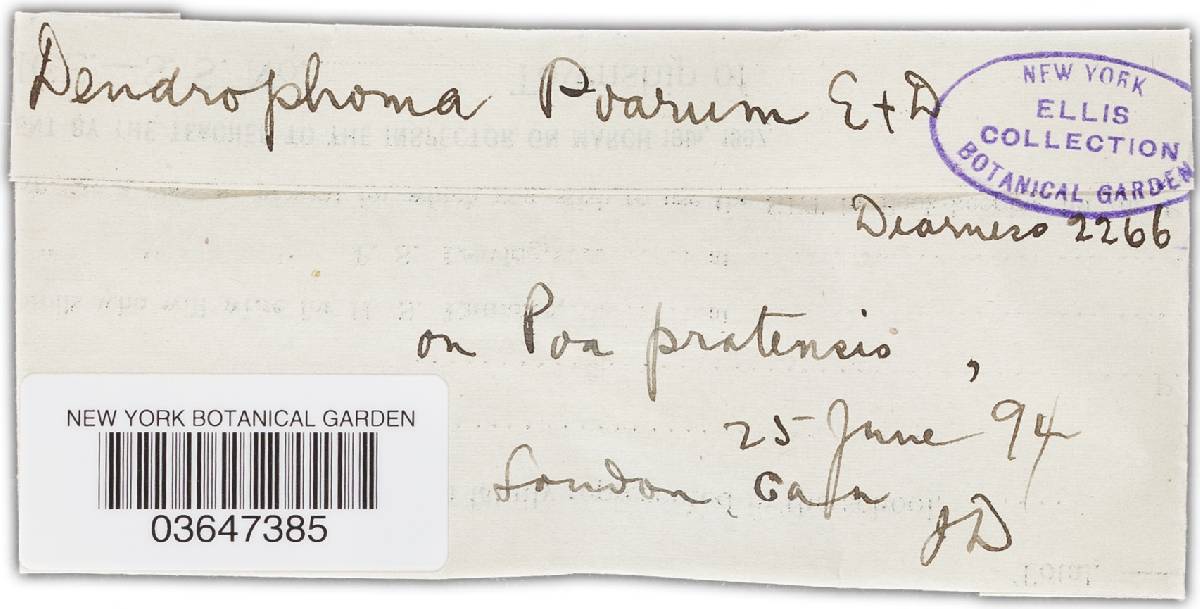 Dendrophoma Poarum E+D
NEW YORK
ELLIS
COLLECTION
BOTANICAL GARDEN
Dearness 2266
on Poa pratensis,
25 June 94
London Can
JD
NEW YORK BOTANICAL GARDEN
03647385